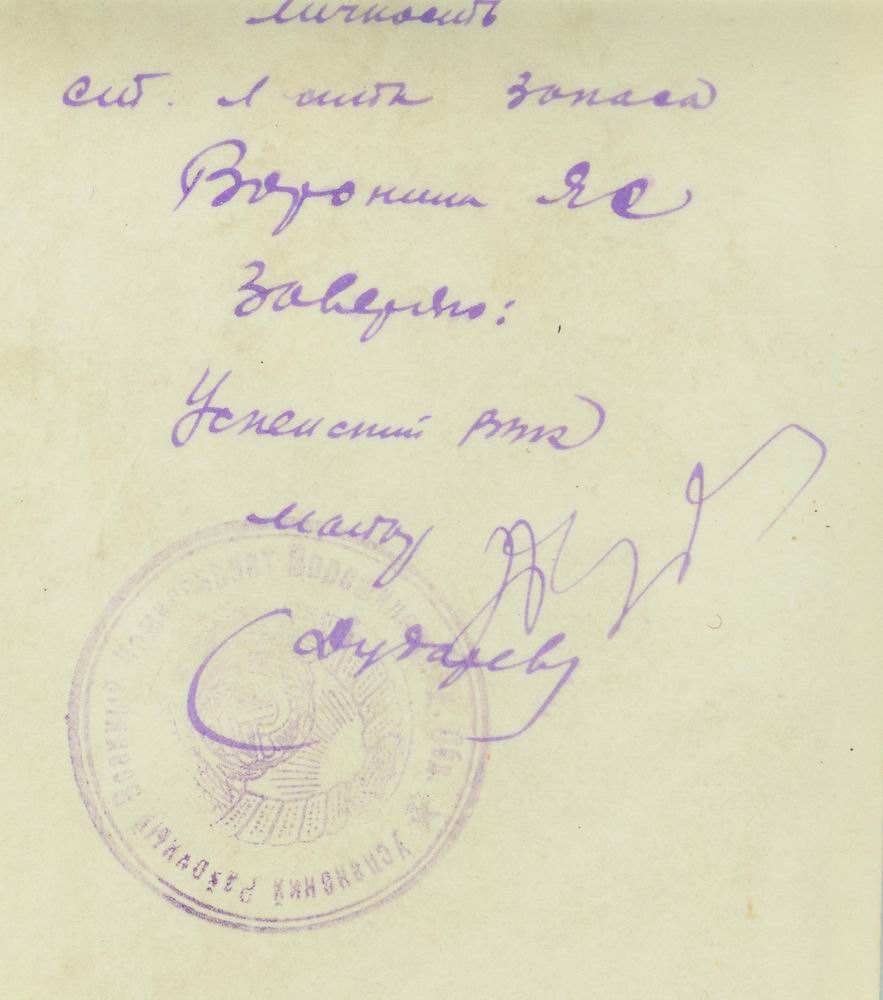 личность
ст. л-нта запаса
Воронина ЯС
Заверяю:
Успенский РВК
майор
(Дударев)
Успенский Районный Военный Комиссариат Ворошиловград. Обл.